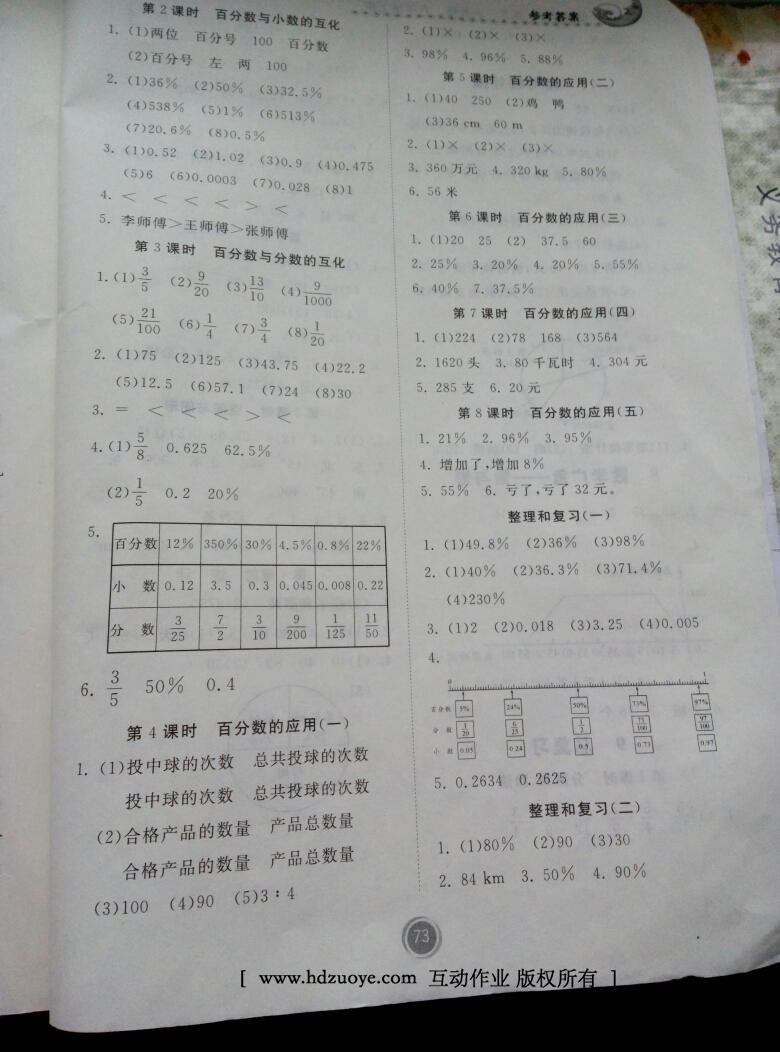 参考答案
第2课时 百分数与小数的互化
1. (1)两位 百分号 100 百分数
(2)百分号 左 两 100
2. (1)36% (2)50% (3)32.5%
(4)538% (5)1% (6)513%
(7)20.6% (8)0.5%
3. (1)0.52 (2)1.02 (3)0.9 (4)0.475
(5)6 (6)0.0003 (7)0.028 (8)1
4. < < < < > <
5. 李师傅>王师傅>张师傅
第3课时 百分数与分数的互化
1. (1)3/5 (2)9/20 (3)13/10 (4)9/1000
(5)21/100 (6)1/4 (7)3/4 (8)1/20
2. (1)75 (2)125 (3)43.75 (4)22.2
(5)12.5 (6)57.1 (7)24 (8)30
3. = < < < > <
4. (1)5/8 0.625 62.5%
(2)1/5 0.2 20%
5.
百分数 12% 350% 30% 4.5% 0.8% 22%
小数 0.12 3.5 0.3 0.045 0.008 0.22
分数 3/25 7/2 3/10 9/200 1/125 11/50
6. 3/5 50% 0.4
第4课时 百分数的应用(一)
1. (1)投中球的次数 总共投球的次数
投中球的次数 总共投球的次数
(2)合格产品的数量 产品总数量
合格产品的数量 产品总数量
(3)100 (4)90 (5)3∶4
2. (1)× (2)× (3)×
3. 98% 4. 96% 5. 88%
第5课时 百分数的应用(二)
1. (1)40 250 (2)鸡 鸭
(3)36 cm 60 m
2. (1)× (2)× (3)×
3. 360万元 4. 320 kg 5. 80%
6. 56米
第6课时 百分数的应用(三)
1. (1)20 25 (2) 37.5 60
2. 25% 3. 20% 4. 20% 5. 55%
6. 40% 7. 37.5%
第7课时 百分数的应用(四)
1. (1)224 (2)78 168 (3)564
2. 1620头 3. 80千瓦时 4. 304元
5. 285支 6. 20元
第8课时 百分数的应用(五)
1. 21% 2. 96% 3. 95%
4. 增加了,增加8%
5. 55% 6. 亏了,亏了32元。
整理和复习(一)
1. (1)49.8% (2)36% (3)98%
2. (1)40% (2)36.3% (3)71.4%
(4)230%
3. (1)2 (2)0.018 (3)3.25 (4)0.005
4.
0 1
百分数 5% 24% 50% 73% 97%
分数 1/20 6/25 1/2 73/100 97/100
小数 0.05 0.24 0.5 0.73 0.97
5. 0.2634 0.2625
整理和复习(二)
1. (1)80% (2)90 (3)30
2. 84 km 3. 50% 4. 90%
73
[ www.hdzuoye.com 互动作业 版权所有 ]
义务教育